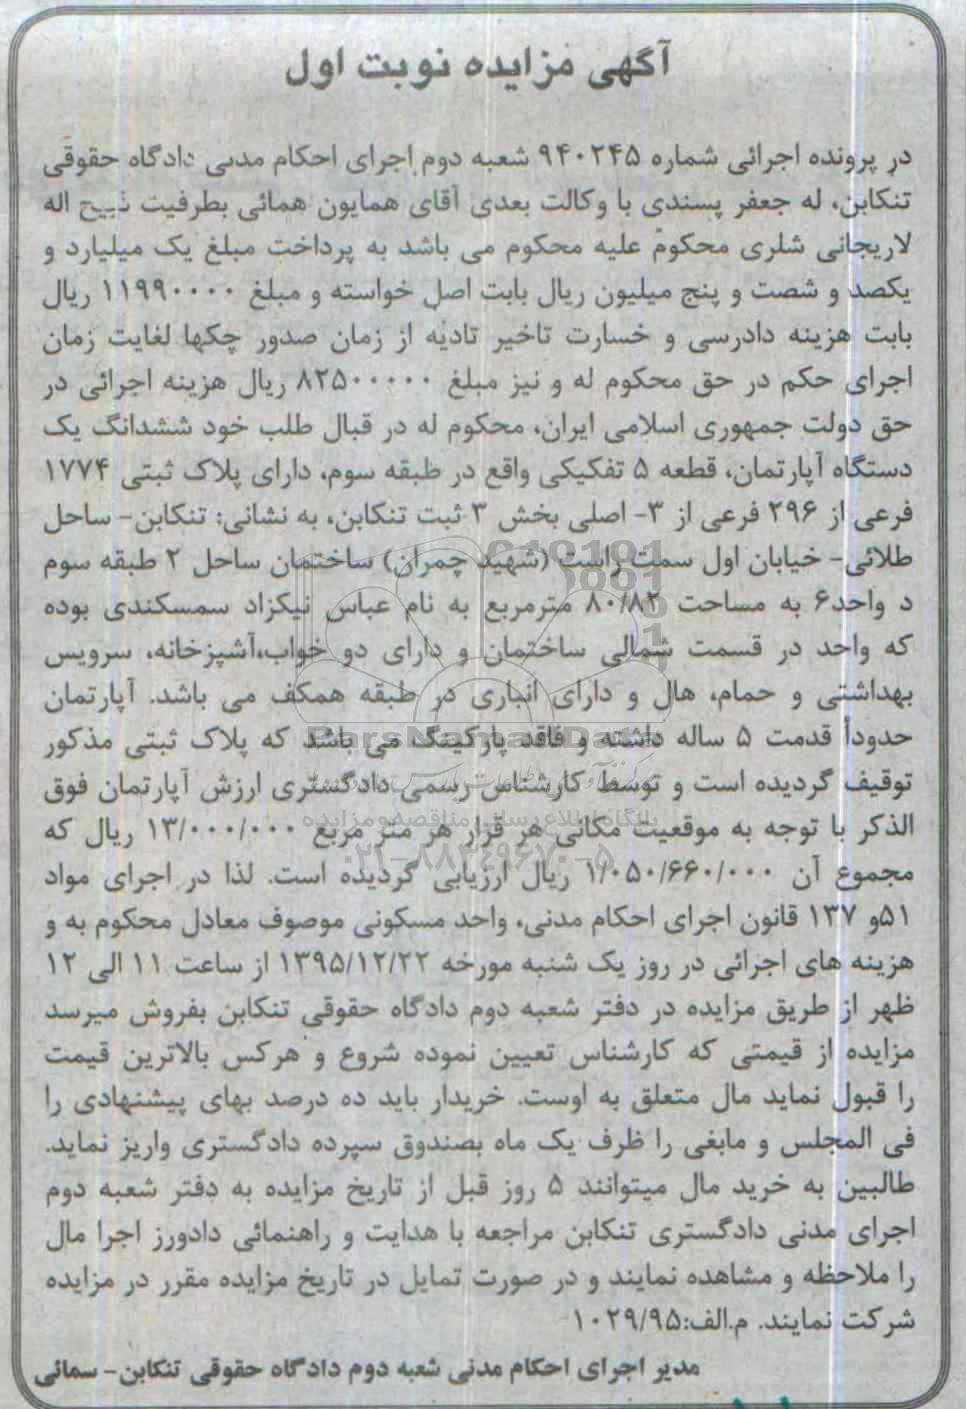 آگهی مزایده نوبت اول
در پرونده اجرائی شماره ۹۴۰۲۴۵ شعبه دوم اجرای احکام مدنی دادگاه حقوقی
تنکابن، له جعفر پسندی با وکالت بعدی آقای همایون همائی بطرفیت ذبیح اله
لاریجانی شلری محکوم علیه محکوم می باشد به پرداخت مبلغ یک میلیارد و
یکصد و شصت و پنج میلیون ریال بابت اصل خواسته و مبلغ ۱۱۹۹۰۰۰۰ ریال
بابت هزینه دادرسی و خسارت تاخیر تادیه از زمان صدور چکها لغایت زمان
اجرای حکم در حق محکوم له و نیز مبلغ ۸۲۵۰۰۰۰۰ ریال هزینه اجرائی در
حق دولت جمهوری اسلامی ایران، محکوم له در قبال طلب خود ششدانگ یک
دستگاه آپارتمان، قطعه ۵ تفکیکی واقع در طبقه سوم، دارای پلاک ثبتی ۱۷۷۴
فرعی از ۲۹۶ فرعی از ۳- اصلی بخش ۳ ثبت تنکابن، به نشانی: تنکابن- ساحل
طلائی- خیابان اول سمت راست (شهید چمران) ساختمان ساحل ۲ طبقه سوم
د واحد۶ به مساحت ۸۰/۸۲ مترمربع به نام عباس نیکزاد سمسکندی بوده
که واحد در قسمت شمالی ساختمان و دارای دو خواب،آشپزخانه، سرویس
بهداشتی و حمام، هال و دارای انباری در طبقه همکف می باشد. آپارتمان
حدوداً قدمت ۵ ساله داشته و فاقد پارکینگ می باشد که پلاک ثبتی مذکور
توقیف گردیده است و توسط کارشناس رسمی دادگستری ارزش آپارتمان فوق
الذکر با توجه به موقعیت مکانی هر قرار هر متر مربع ۱۳/۰۰۰/۰۰۰ ریال که
مجموع آن ۱/۰۵۰/۶۶۰/۰۰۰ ریال ارزیابی گردیده است. لذا در اجرای مواد
۵۱و ۱۳۷ قانون اجرای احکام مدنی، واحد مسکونی موصوف معادل محکوم به و
هزینه های اجرائی در روز یک شنبه مورخه ۱۳۹۵/۱۲/۲۲ از ساعت ۱۱ الی ۱۲
ظهر از طریق مزایده در دفتر شعبه دوم دادگاه حقوقی تنکابن بفروش میرسد
مزایده از قیمتی که کارشناس تعیین نموده شروع و هرکس بالاترین قیمت
را قبول نماید مال متعلق به اوست. خریدار باید ده درصد بهای پیشنهادی را
فی المجلس و مابقی را ظرف یک ماه بصندوق سپرده دادگستری واریز نماید.
طالبین به خرید مال میتوانند ۵ روز قبل از تاریخ مزایده به دفتر شعبه دوم
اجرای مدنی دادگستری تنکابن مراجعه با هدایت و راهنمائی دادورز اجرا مال
را ملاحظه و مشاهده نمایند و در صورت تمایل در تاریخ مزایده مقرر در مزایده
شرکت نمایند. م.الف:۱۰۲۹/۹۵
مدیر اجرای احکام مدنی شعبه دوم دادگاه حقوقی تنکابن- سمائی
ParsNamadData
پایگاه اطلاع رسانی مناقصه و مزایده
۰۲۱-۸۸۳۴۹۶۷۰-۵